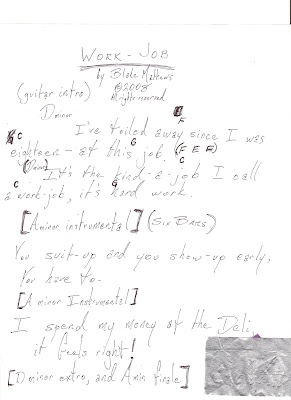 WORK - JOB
by Blake Mathews
(guitar intro) ©2008
All rights reserved
D minor
F
C
I've toiled away since I was
G
eighteen - at this job. (F E F)
(Dmin) C
It's the kind-a-job I call
C G
a work-job, it's hard work.
[A minor instrumental] (Six Bars)
You suit-up and you show-up early,
You have to-
[A minor Instrumental]
I spend my money at the Deli,
it feels right!
[D minor extro, and Amin finale]